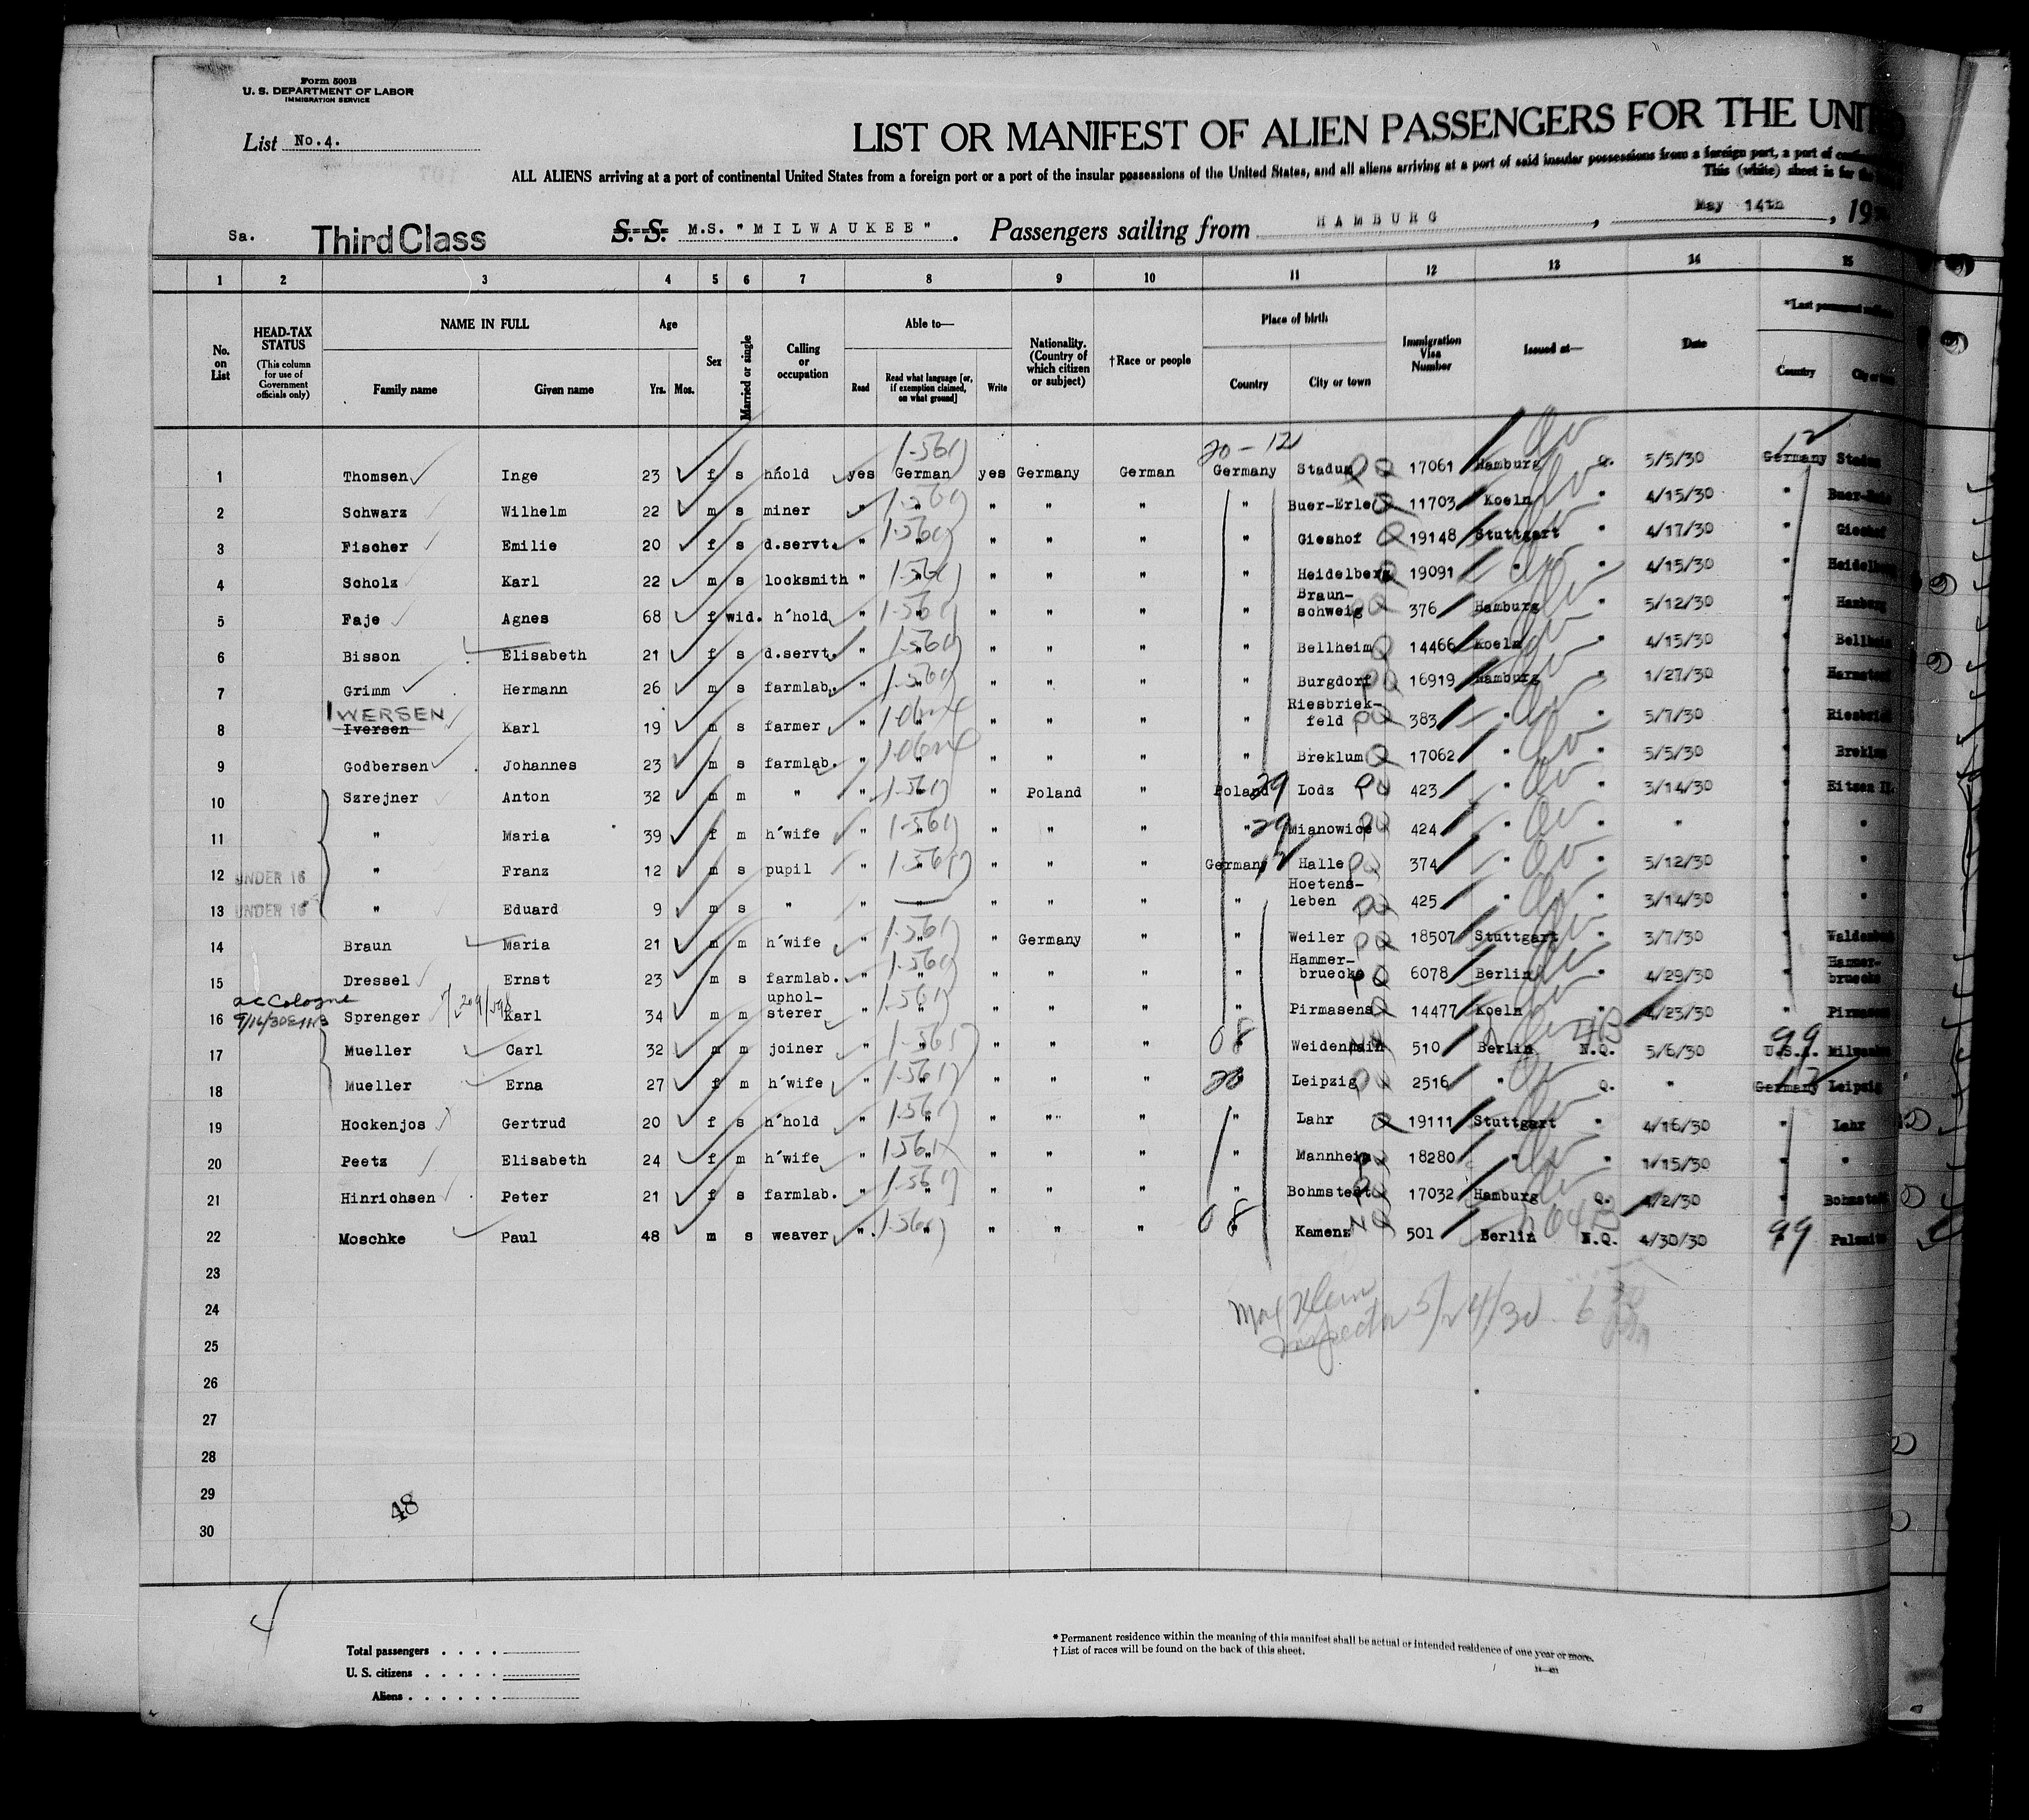 Form 500B
U. S. DEPARTMENT OF LABOR
IMMIGRATION SERVICE
List No.4.
LIST OR MANIFEST OF ALIEN PASSENGERS FOR THE UNIT
ALL ALIENS arriving at a port of continental United States from a foreign port or a port of the insular possessions of the United States, and all aliens arriving at a port of said insular possessions from a foreign port, a port of
This (white) sheet is for the
Sa. Third Class S. S. M.S. "MILWAUKEE". Passengers sailing from HAMBURG, May 14th, 19
1 2 3 4 5 6 7 8 9 10 11 12 13 14 15
No. on List
HEAD-TAX STATUS
(This column for use of Government officials only)
NAME IN FULL
Family name Given name
Age
Yrs. Mos.
Sex
Married or single
Calling or occupation
Able to—
Read Read what language [or, if exemption claimed, on what ground] Write
Nationality. (Country of which citizen or subject)
†Race or people
Place of birth
Country City or town
Immigration Visa Number
Issued at—
Date
*Last permanent
Country City or
20-12
1 Thomsen Inge 23 f s h'hold yes German yes Germany German Germany Stadum 17061 Hamburg Q. 5/5/30 Germany
2 Schwarz Wilhelm 22 m s miner " " " " " " Buer-Erle 11703 Koeln " 4/15/30 "
3 Fischer Emilie 20 f s d.servt. " " " " " " Gieshof 19148 Stuttgart " 4/17/30 " Gieshof
4 Scholz Karl 22 m s locksmith " " " " " " Heidelberg 19091 " " 4/15/30 "
5 Faje Agnes 68 f wid. h'hold " " " " " " Braun-schweig 376 Hamburg " 5/12/30 " Hamburg
6 Bisson Elisabeth 21 f s d.servt. " " " " " " Bellheim 14466 Koeln " 4/15/30 " Bellheim
7 Grimm Hermann 26 m s farmlab. " " " " " " Burgdorf 16919 Hamburg " 1/27/30 "
IWERSEN
8 Iversen Karl 19 m s farmer " " " " " " Riesbriek-feld 383 " " 5/7/30 "
9 Godbersen Johannes 23 m s farmlab. " " " " " " Breklum 17062 " " 5/5/30 " Breklum
10 Szrejner Anton 32 m m " " " " Poland " Poland Lodz 423 " " 3/14/30 " Eitzen II.
11 " Maria 39 f m h'wife " " " " " " Mianowice 424 " " " " "
12 UNDER 16 " Franz 12 m s pupil " " " " " Germany Halle 374 " " 5/12/30 " "
13 UNDER 16 " Eduard 9 m s " " " " " " " Hoetens-leben 425 " " 3/14/30 " "
14 Braun Maria 21 m m h'wife " " " Germany " " Weiler 18507 Stuttgart " 3/7/30 "
15 Dressel Ernst 23 m s farmlab. " " " " " " Hammer-bruecke 6078 Berlin " 4/29/30 " Hammer-bruecke
16 Sprenger Karl 34 m m uphol-sterer " " " " " " Pirmasens 14477 Koeln " 4/23/30 "
17 Mueller Carl 32 m m joiner " " " " " 08 Weidenhain 510 Berlin N.Q. 5/6/30 U.S.A. 99
18 Mueller Erna 27 f m h'wife " " " " " Leipzig 2516 " Q. " Germany Leipzig
19 Hockenjos Gertrud 20 f s h'hold " " " " " " Lahr 19111 Stuttgart " 4/16/30 " Lahr
20 Peetz Elisabeth 24 f m h'wife " " " " " " Mannheim 18280 " " 1/15/30 " "
21 Hinrichsen Peter 21 f s farmlab. " " " " " " Bohmstedt 17032 Hamburg Q. 4/2/30 "
22 Moschke Paul 48 m s weaver " " " " " 08 " Kamenz 501 Berlin N.Q. 4/30/30 99
23
24
Inspector 5/24/30
25
26
27
28
29
48
30
4
Total passengers
U. S. citizens
Aliens
* Permanent residence within the meaning of this manifest shall be actual or intended residence of one year or more.
† List of races will be found on the back of this sheet.